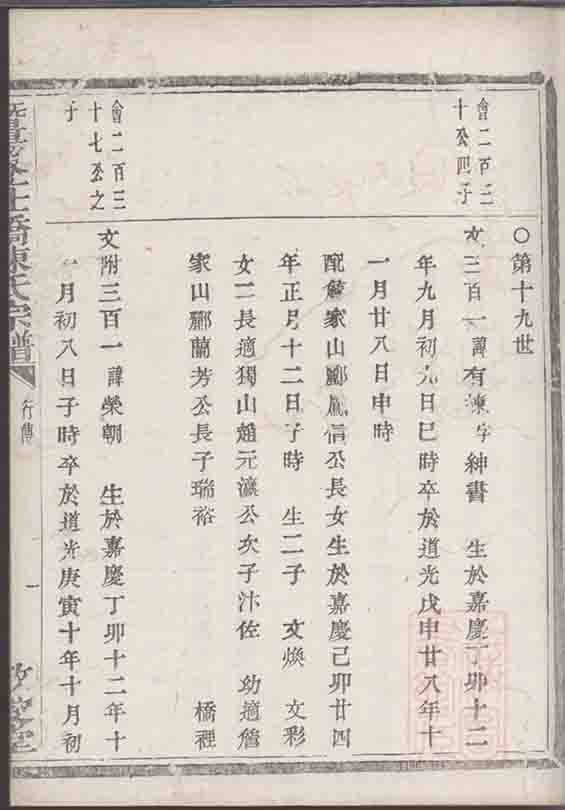 〇第十九世
會二百三
十公四子
文三百一諱有諫字紳書 生於嘉慶丁卯十二
年九月初九日巳時卒於道光戊申廿八年十
一月廿八日申時
配詹家山酈鳳信公長女生於嘉慶己卯廿四
年正月十二日子時 生二子 文煥 文彩
女二長適獨山趙元瀛公次子汴佐 幼適詹
家山酈蘭芳公長子瑞裕 橋裡
會二百三
十七公之
子
文附三百一諱榮朝 生於嘉慶丁卯十二年十
月初八日子時卒於道光庚寅十年十月初
橋陳氏宗譜
行傳
一
堂